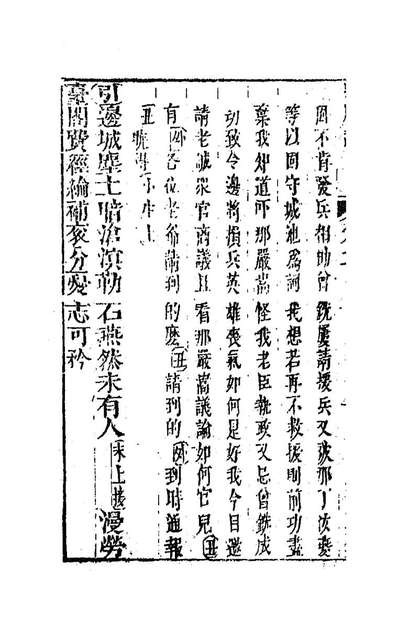 周不肯發兵相助曾銑屢請援兵又被那丁汝夔
等以固守城池為詞我想若再不救援則前功盡
棄我知道了那嚴嵩怪我老臣執政又忌曾銑成
功致令邊將損兵英雄喪氣如何是好我今日邀
請老誠衆官商議且看那嚴嵩議論如何官兒丑
有因各位老爺請到的麽丑請到的因到時通報
丑曉得
引邊城塵土暗滄溟勒石燕然未有人末上接漫勞
臺閣費經綸補袞分憂志可矜